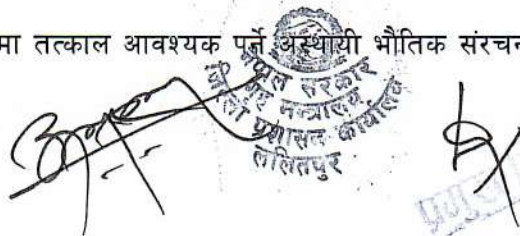 मा तत्काल आवश्यक पर्ने अस्थायी भौतिक संरचन
नेपाल सरकार
गृह मन्त्रालय
जिल्ला प्रशासन कार्यालय
ललितपुर
प्रमुख